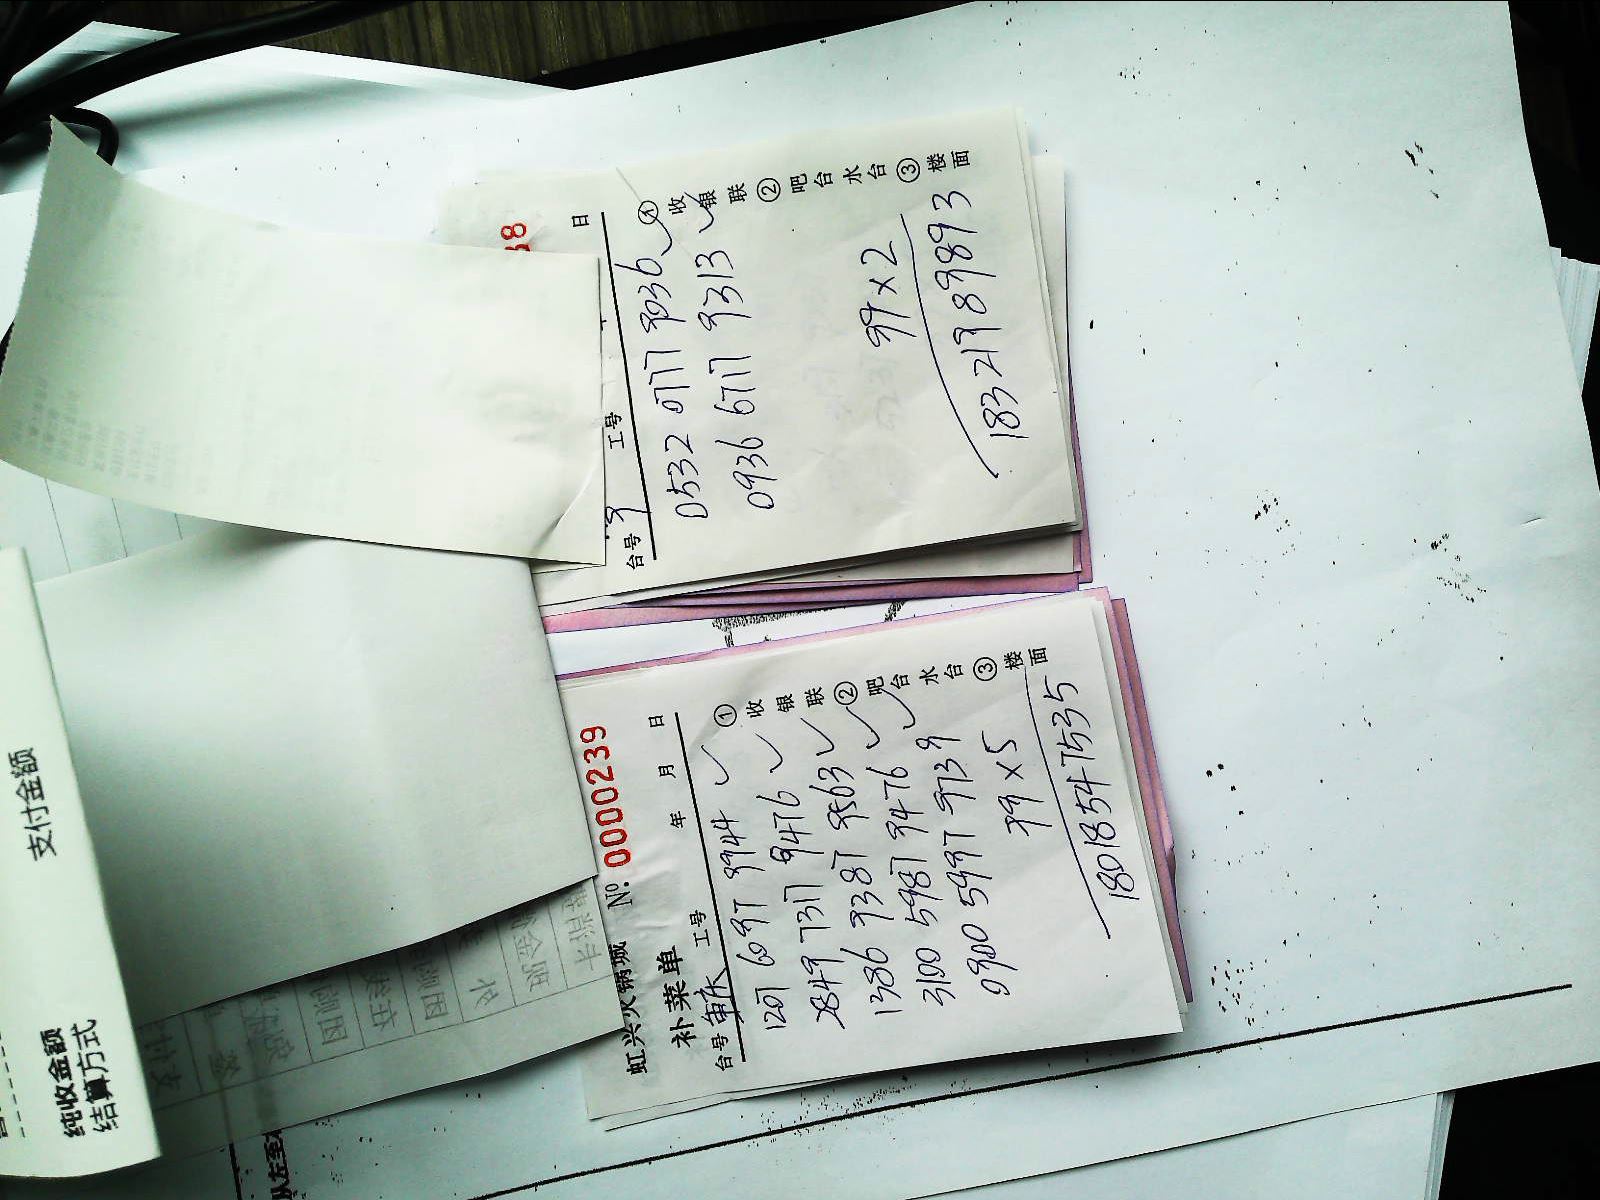 支付金额
纯收金额
结算方式
从左至
虹兴火锅城 № 0000239
补菜单
台号 工号 年 月 日
1201 6097 9944
2849 7317 9476
1386 9387 9563
3100 5987 9476
0900 5997 9739
99×5
18018547535
①收银联②吧台水台③楼面
38
台号 工号 日
0532 0777 9936
0936 6717 9313
99×2
18321989893
①收银联②吧台水台③楼面